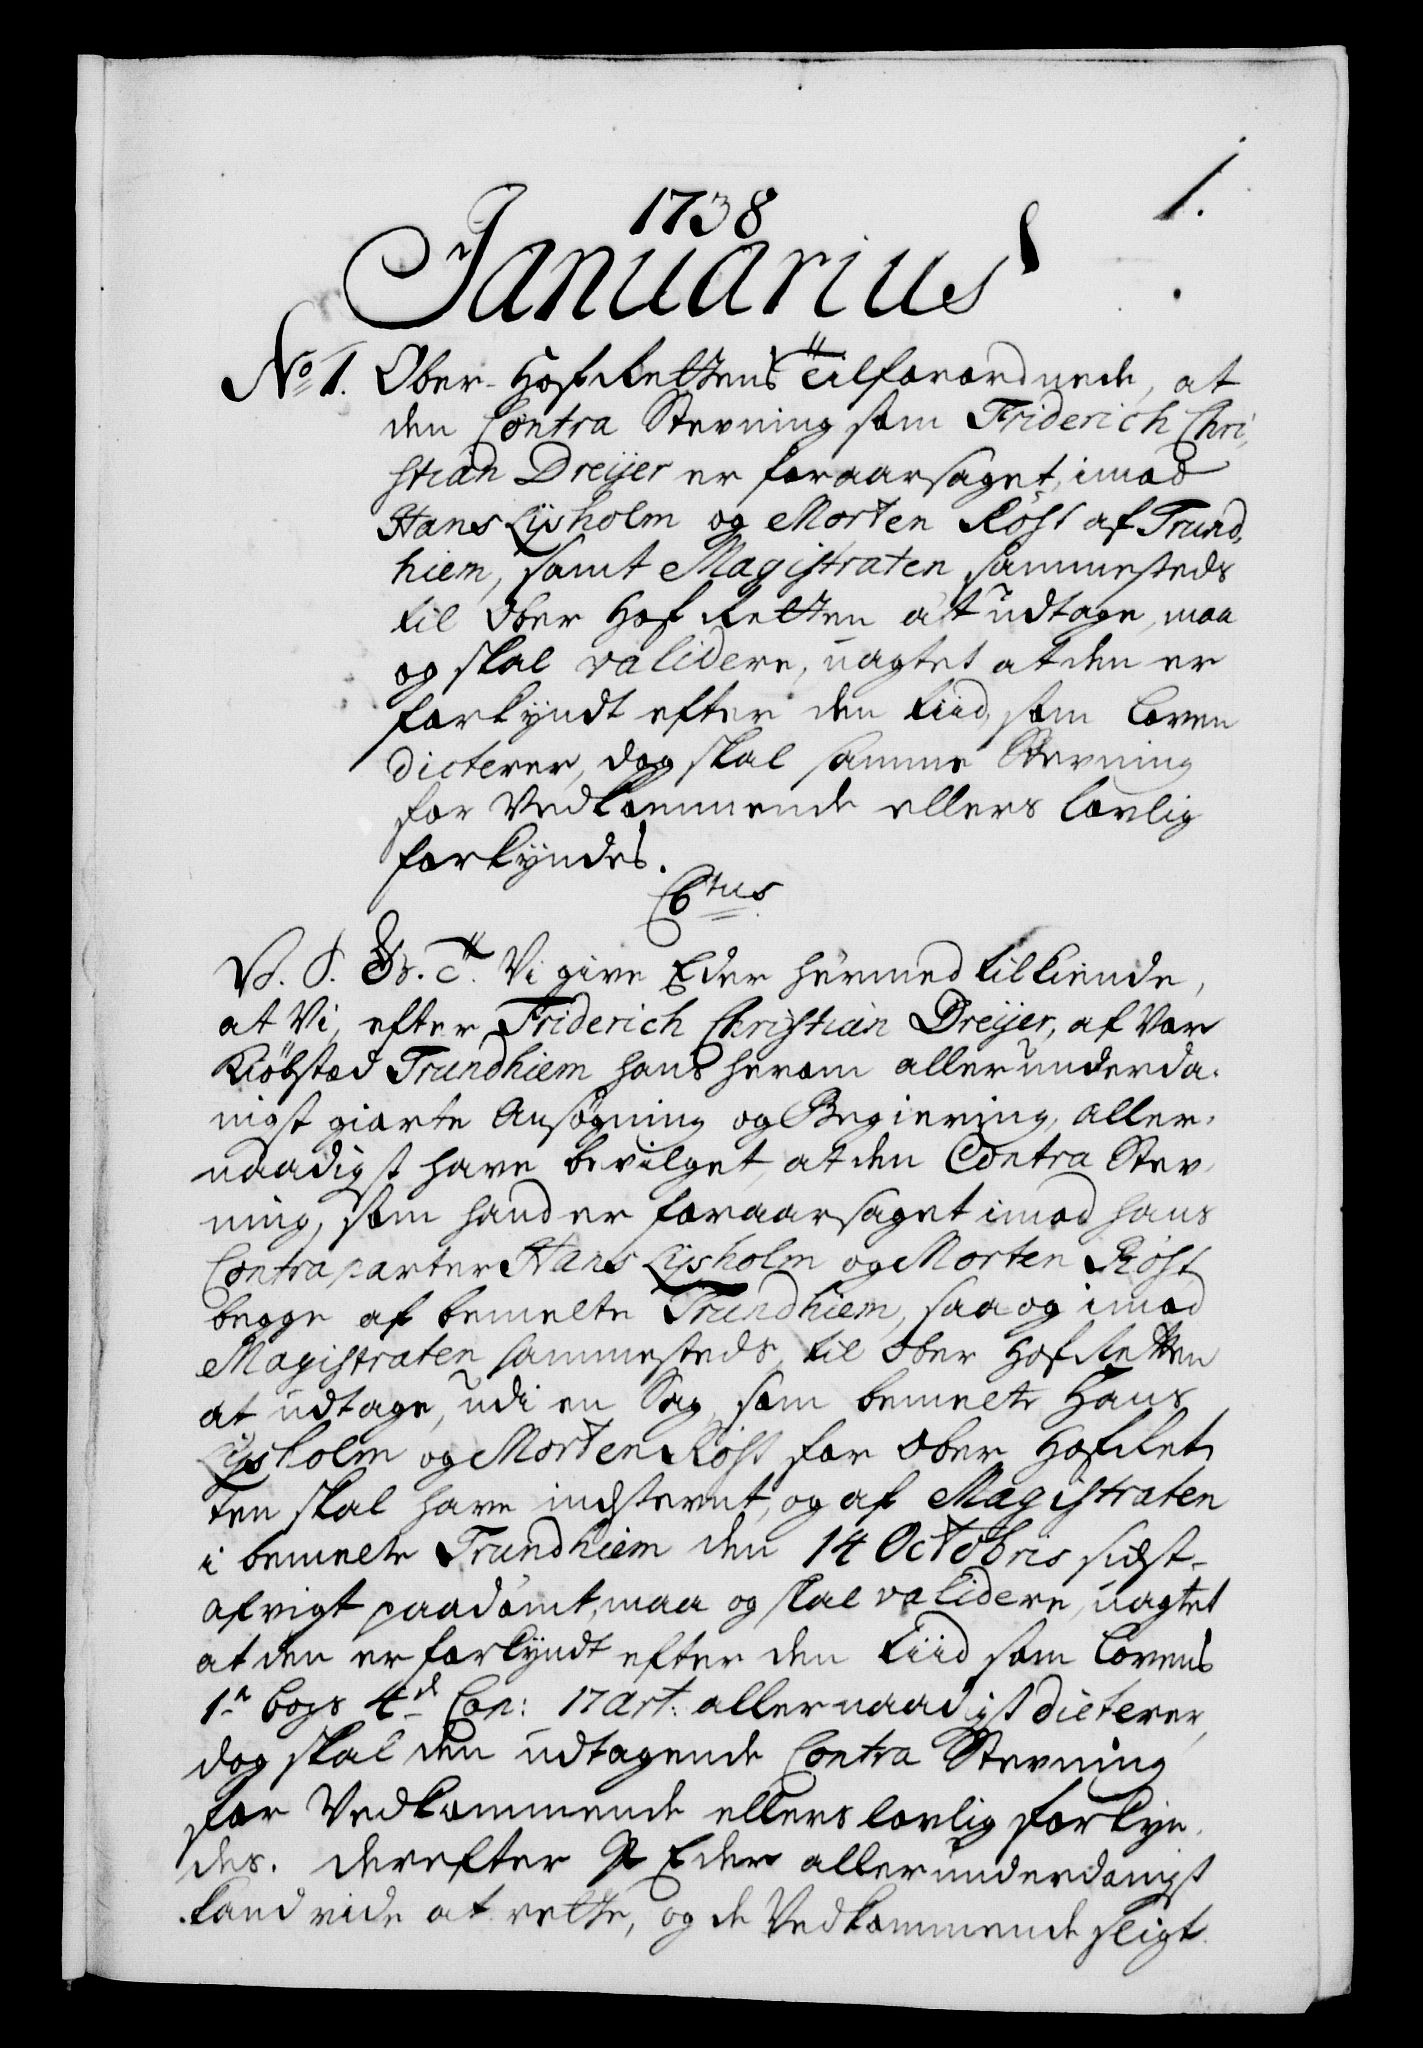 1.
1738
Januarius
No 1. Ober-Hof Rettens Tilforordnede, at
den Contra Stevning som Friderich Chri,
stian Dreijer er foraarsaget, imod
Hans Lijsholm og Morten Röst af Trund,
hiem, samt Magistraten sammesteds
til Ober Hof Retten at udtage, maa
og skal validere, uagtet at den er
forkyndt efter den Tiid, som Loven
dicterer, dog skal samme Stevning
for Vedkommende ellers lovlig
forkyndes.
C6tus
V. S. G. T. Vi give Eder hermed tilkiende,
at Vi, efter Friderich Christian Dreijer, af Vor
Kiöbstad Trundhiem hans herom allerunderda,
nigst giorte Ansögning og Begiering, aller,
naadigst have bevilget, at den Contra Stev,
ning, som hand er foraarsaget imod hans
Contraparter Hans Lijsholm og Morten Röst
begge af bemelte Trundhiem, saa og imod
Magistraten sammesteds, til Ober Hof Retten
at udtage, udi en Sag, som bemelte Hans
Lijsholm og Morten Röst for Ober Hof Ret,
ten skal have indstevnt, og af Magistraten
i bemelte Trundhiem den 14 Octobris sidst-
afvigt paadömt, maa og skal validere, uagtet
at den er forkyndt efter den Tiid som Lovens
1te Bogs 4de Cap: 17 Art: allernaadigst dicterer,
dog skal den udtagende Contra Stevning
for Vedkommende ellers lovlig forkyn,
des. Derefter I Eder allerunderdanigst
kand vide at rette, og de Vedkommende sligt